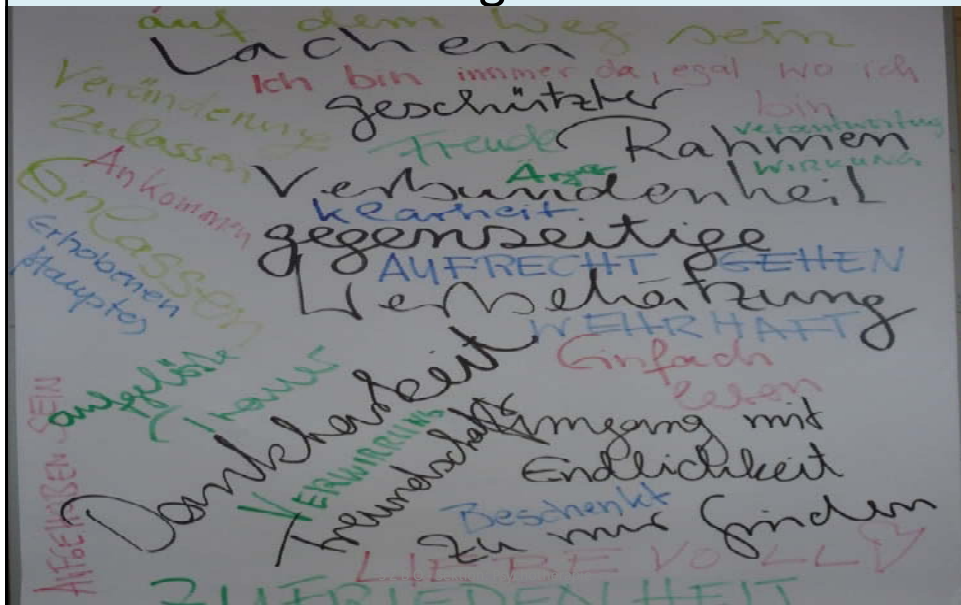 auf dem Weg sein
Lachen
Ich bin immer da, egal wo ich
bin
Veränderung
zulassen
geschützter
Rahmen
Freude
Verantwortung
WIRKUNG
Ankommen
Verbundenheit
Ärger
Klarheit.
Einlassen
gegenseitige
Erhobenen
Hauptes
AUFRECHT GEHEN
Wertschätzung
WEHRHAFT
Einfach
leben
aufgelöste
Trauer
Dankbarkeit
VERWIRRUNG
Freundschaft
AUFGEHOBEN SEIN
Umgang mit
Endlichkeit
Beschenkt
zu mir finden
LIEBEVOLL
ZUFRIEDENHEIT